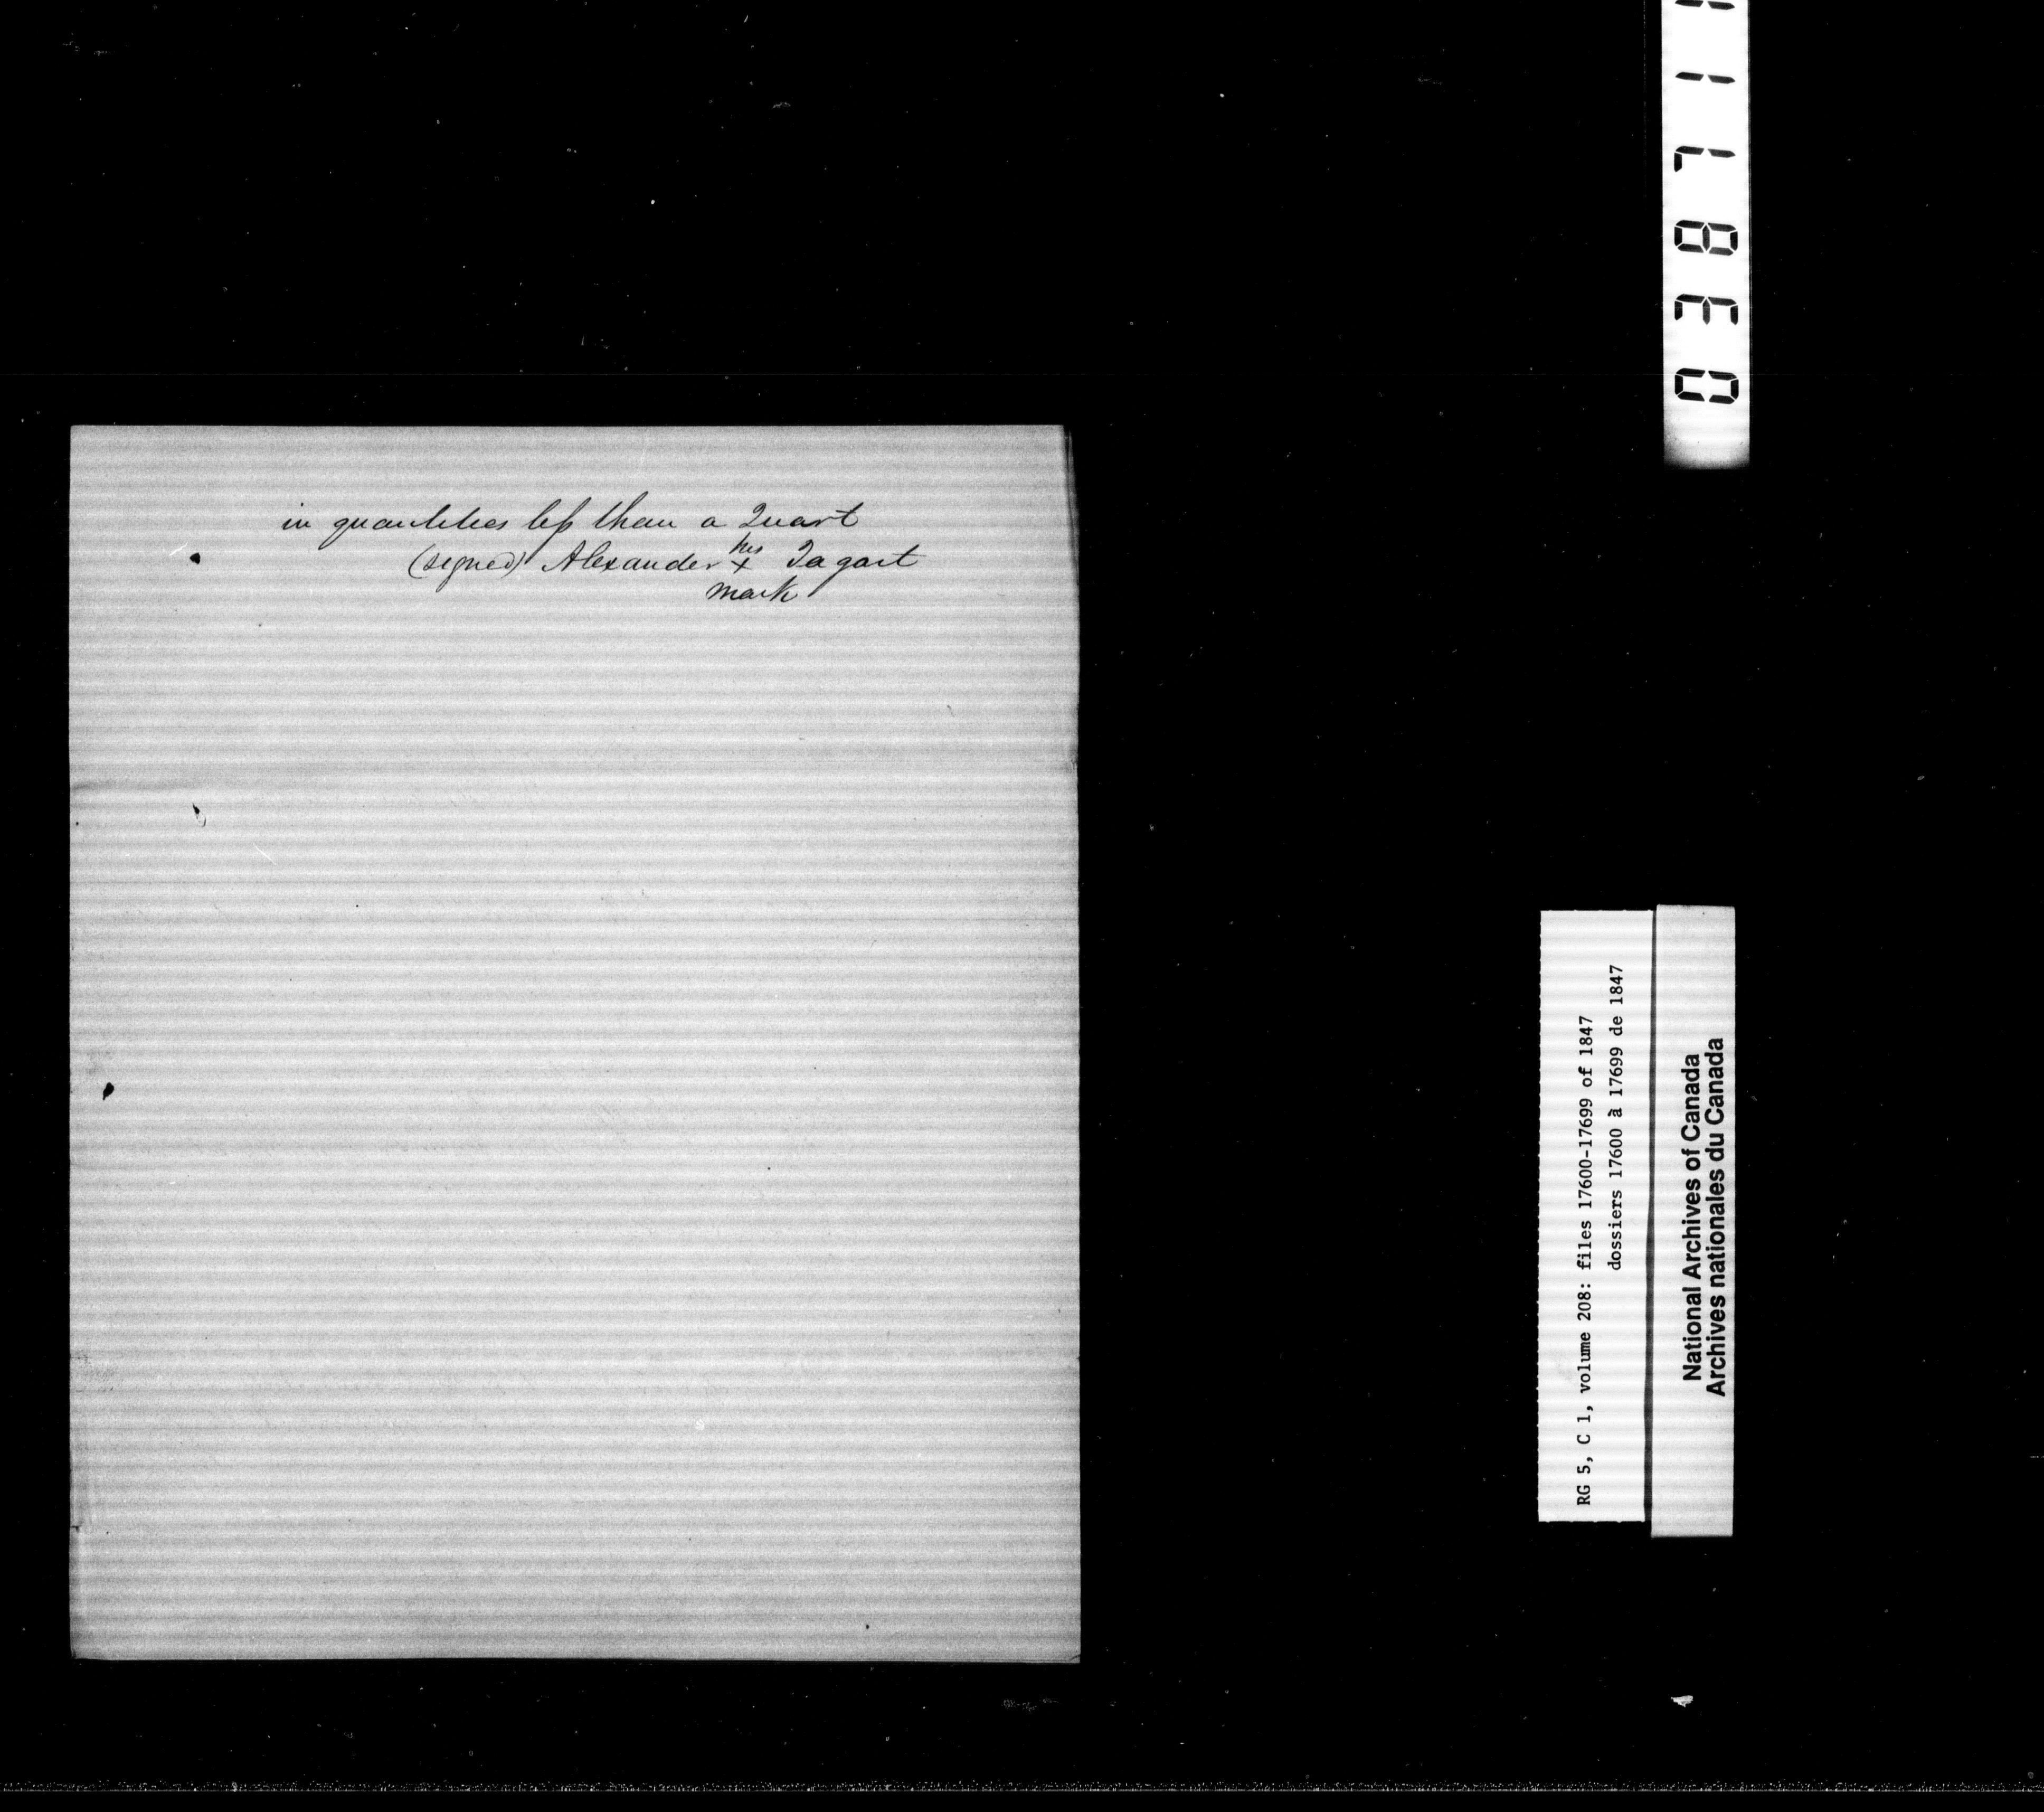 in quantities less than a Quart
(signed) Alexander his x Tagart
mark
RG 5, C 1, volume 208: files 17600-17699 of 1847
dossiers 17600 à 17699 de 1847
National Archives of Canada
Archives nationales du Canada